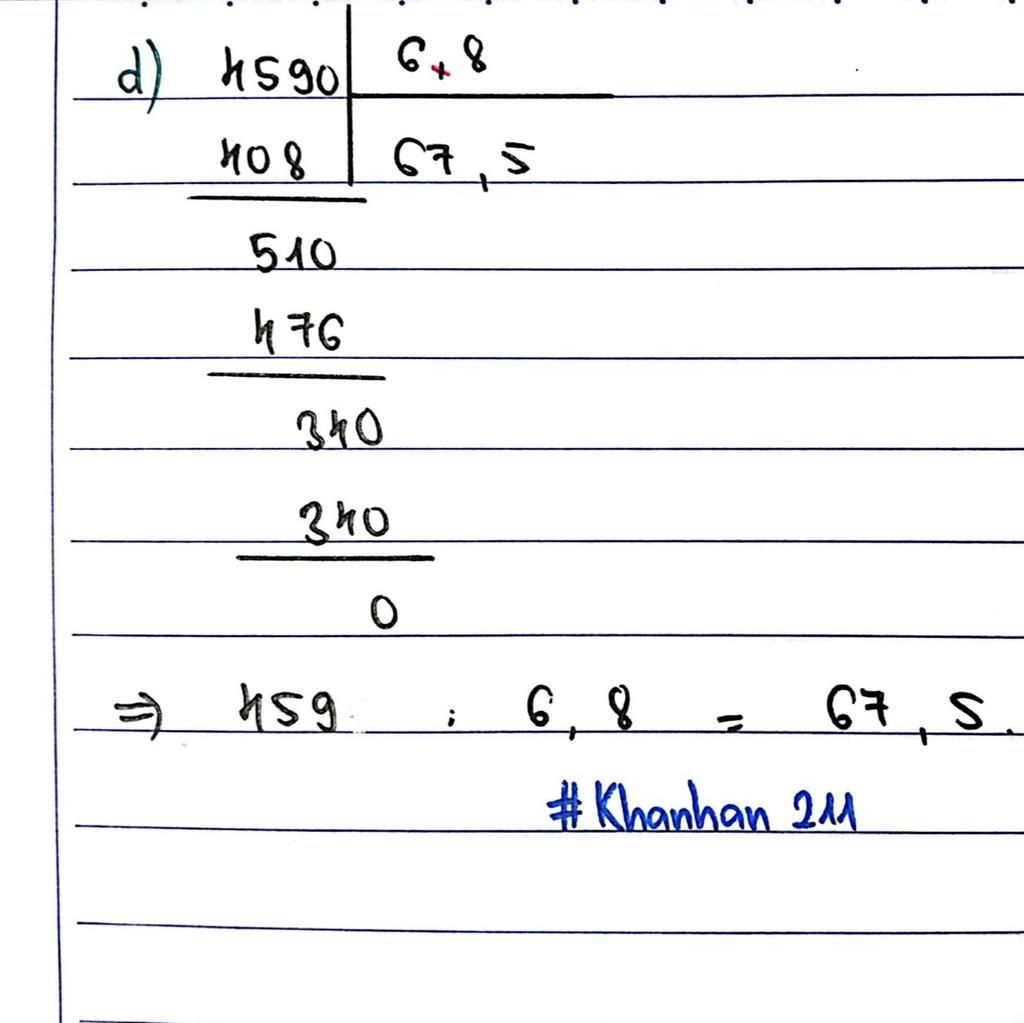 d) 4590 | 6,8
408 | 67,5
510
476
340
340
0
⇒ 459 : 6,8 = 67,5.
#Khanhan 211